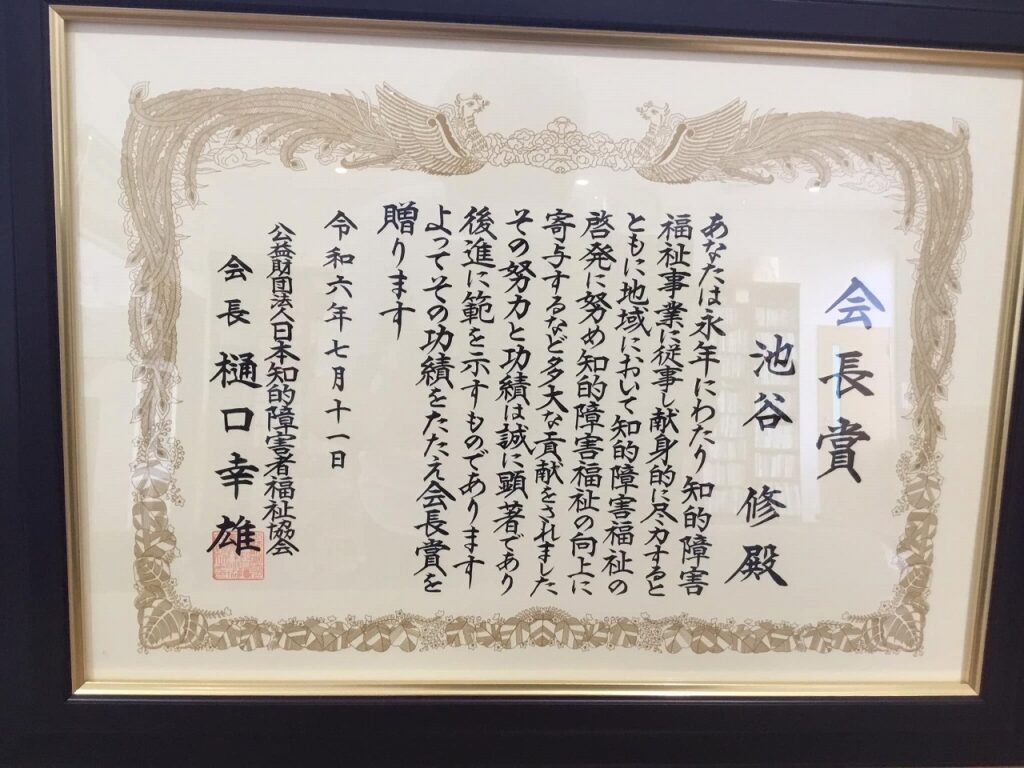 会長賞
池谷 修 殿
あなたは永年にわたり知的障害
福祉事業に従事し献身的に尽力すると
ともに地域において知的障害福祉の
啓発に努め知的障害福祉の向上に
寄与するなど多大な貢献をされました
その努力と功績は誠に顕著であり
後進に範を示すものであります
よってその功績をたたえ会長賞を
贈ります
令和六年七月十一日
公益財団法人日本知的障害者福祉協会
会長 樋口幸雄